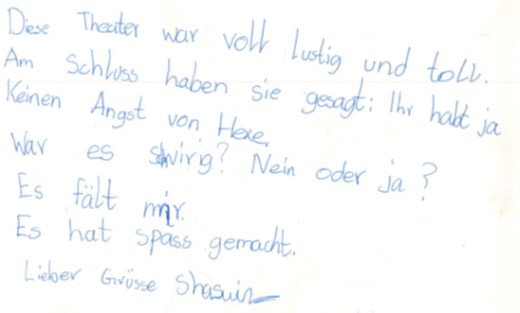 Diese Theater war voll lustig und toll.
Am Schluss haben sie gesagt: Ihr habt ja
Keinen Angst von Hexe.
War es shwirig? Nein oder ja?
Es fält mir.
Es hat spass gemacht.
Lieber Grüsse Shasuin